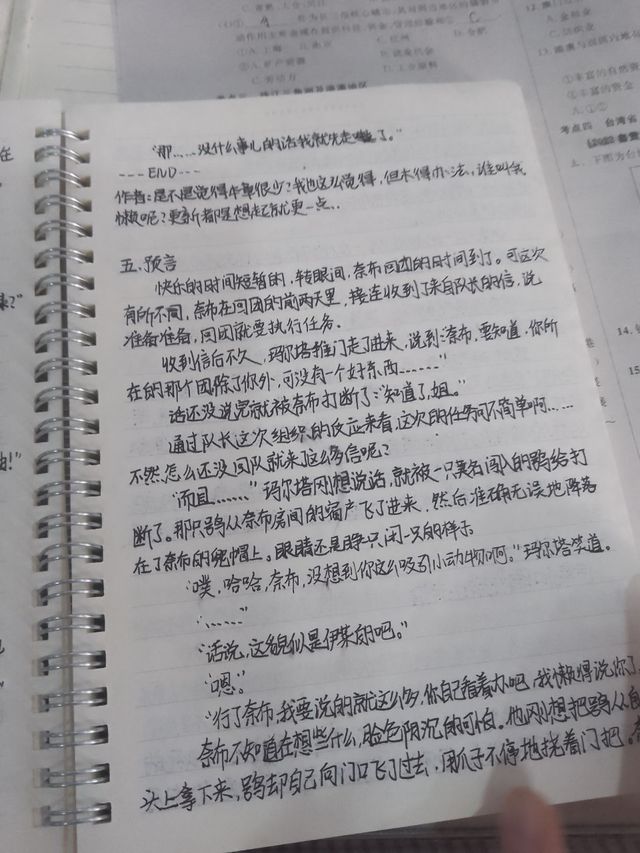 C.
C.杭州
D.合肥
①A.上海
C.劳动力
D.工业原料
A.金
①丰富的自然资
②丰富的
A.①②
考点四 台湾省
14.
15.
在
"
"那……没什么事儿的话我就先走啦了。"
----END----
作者:是不是觉得本章很少?我也这么觉得,但木得办法,谁叫我
懒呢?更新都是想起就更一点..
五.预言
快乐的时间短暂的,转眼间,奈布回团的时间到了。可这次
有所不同,奈布在回团的前两天里,接连收到了来自队长的信,说
准备准备,回团就要执行任务.
收到信后不久,玛尔塔推门走了进来,说到:奈布,要知道,你所
在的那个团除了你外,可没有一个好东西……"
话还没说完就被奈布打断了:"知道了,姐。"
通过队长这次组织的反应来看,这次的任务可不简单啊……
不然怎么还没回队就来了这么多信呢?
"而且……"玛尔塔刚想说话,就被一只莫名闯入的鸮给打
断了。那只鸮从奈布房间的窗户飞了进来,然后准确无误地降落
在了奈布的兜帽上。眼睛还是睁只闭一只的样子.
"噗,哈哈,奈布,没想到你这么吸引小动物啊。"玛尔塔笑道。
"……"
"话说,这貌似是伊莱的吧。"
"嗯。"
"行了奈布,我要说的就这么多,你自己看着办吧,我懒得说你了
奈布不知道在想些什么,脸色阴沉的可怕。他刚想把鸮从自
头上拿下来,鸮却自己向门口飞了过去,用爪子不停地挠着门把。